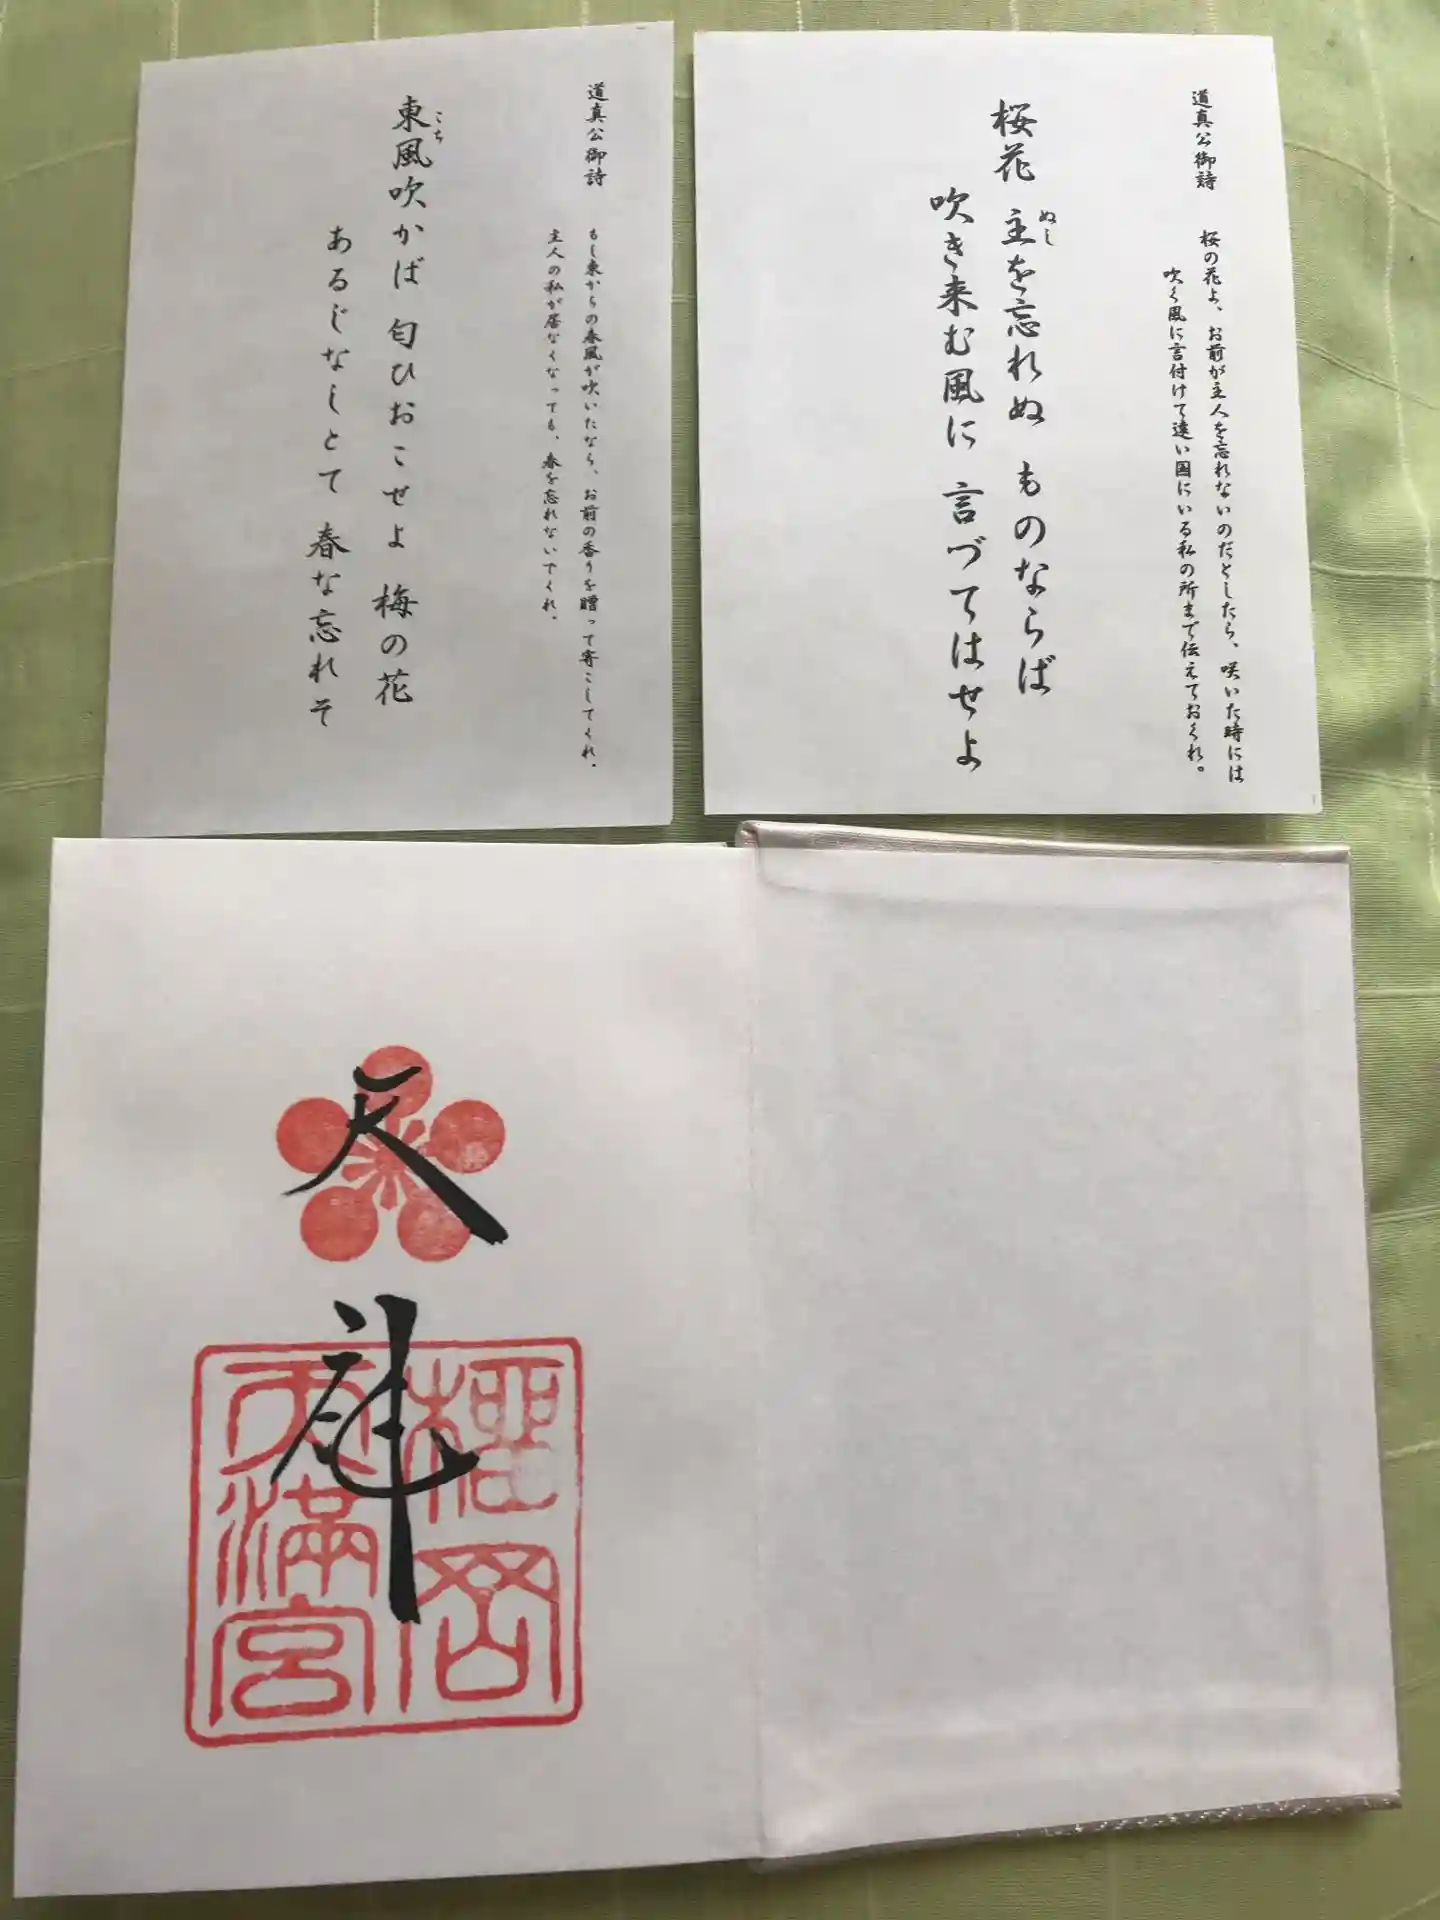 道真公御詩
桜の花よ、お前が主人を忘れないのだとしたら、咲いた時には
吹く風に言付けて遠い国にいる私の所まで伝えておくれ。
桜花 主を忘れぬ ものならば
ぬし
吹き来む風に 言づてはせよ
道真公御詩
もし東からの春風が吹いたなら、お前の香りを贈って寄こしてくれ。
主人の私が居なくなっても、春を忘れないでくれ。
東風吹かば 匂ひおこせよ 梅の花
こち
あるじなしとて 春な忘れそ
天神
櫻岡
天滿宮